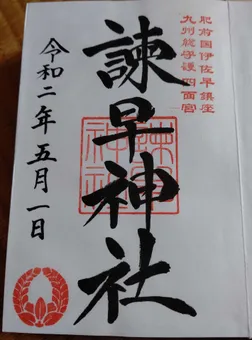 肥前国伊佐早鎮座
九州総守護 四面宮
諫早神社
諫早
神社
令和二年五月一日